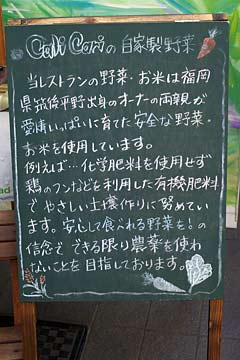 Cali Cariの自家製野菜
当レストランの野菜・お米は福岡
県筑後平野出身のオーナーの両親が
愛情いっぱいに育てた安全な野菜・
お米を使用しています。
例えば…化学肥料を使用せず
鶏のフンなどを利用した有機肥料
でやさしい土壌作りに努めてい
ます。安心して食べれる野菜を!の
信念でできる限り農薬を使わ
ないことを目指しております。